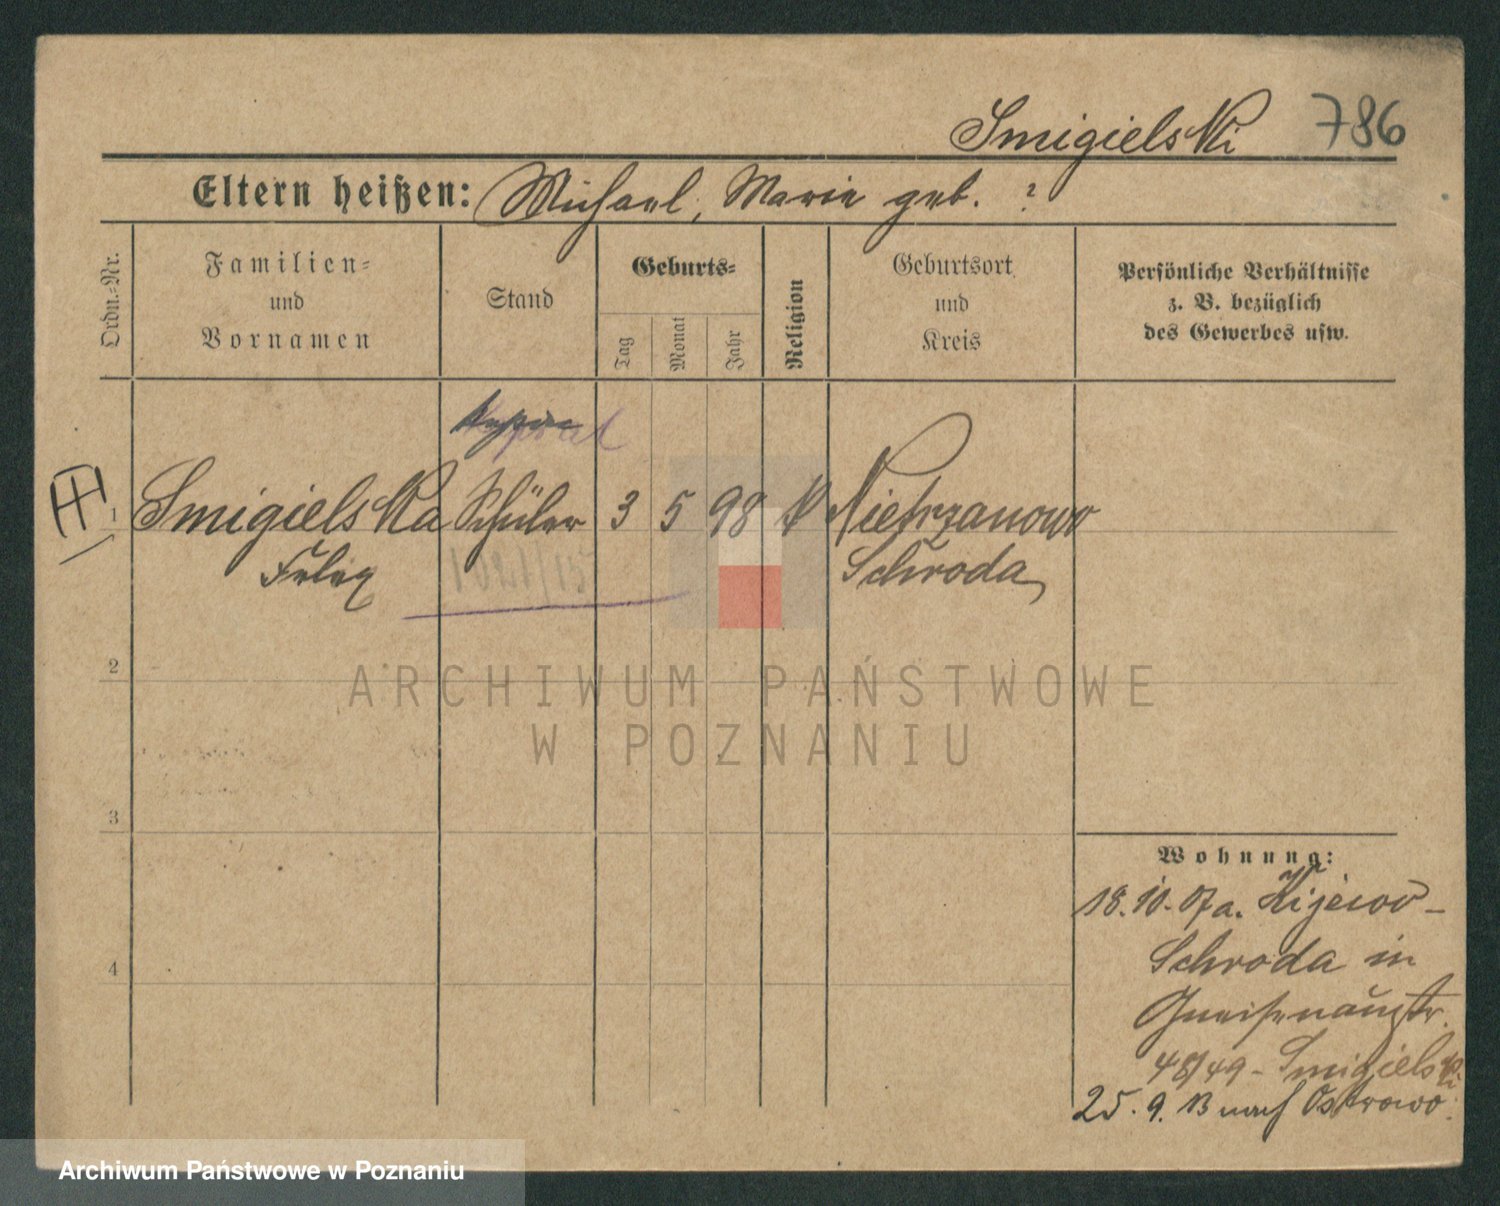 Smigielski 786
Eltern heißen: Michael, Marie geb. ?
Ordn.-Nr.
Familien-
und
Vornamen
Stand
Geburts-
Tag
Monat
Jahr
Religion
Geburtsort
und
Kreis
Persönliche Verhältnisse
z. B. bezüglich
des Gewerbes usw.
1 Smigielska Schüler 3 5 98 K Nietrzanowo
Felix 1021/15 Schroda
2
ARCHIWUM PAŃSTWOWE
W POZNANIU
3
Wohnung:
18.10.07 a. Kijewo-
4
Schroda in
Gneisenaustr.
48/49 - Smigielski
25. 9. 13 nach Ostrowo.
Archiwum Państwowe w Poznaniu